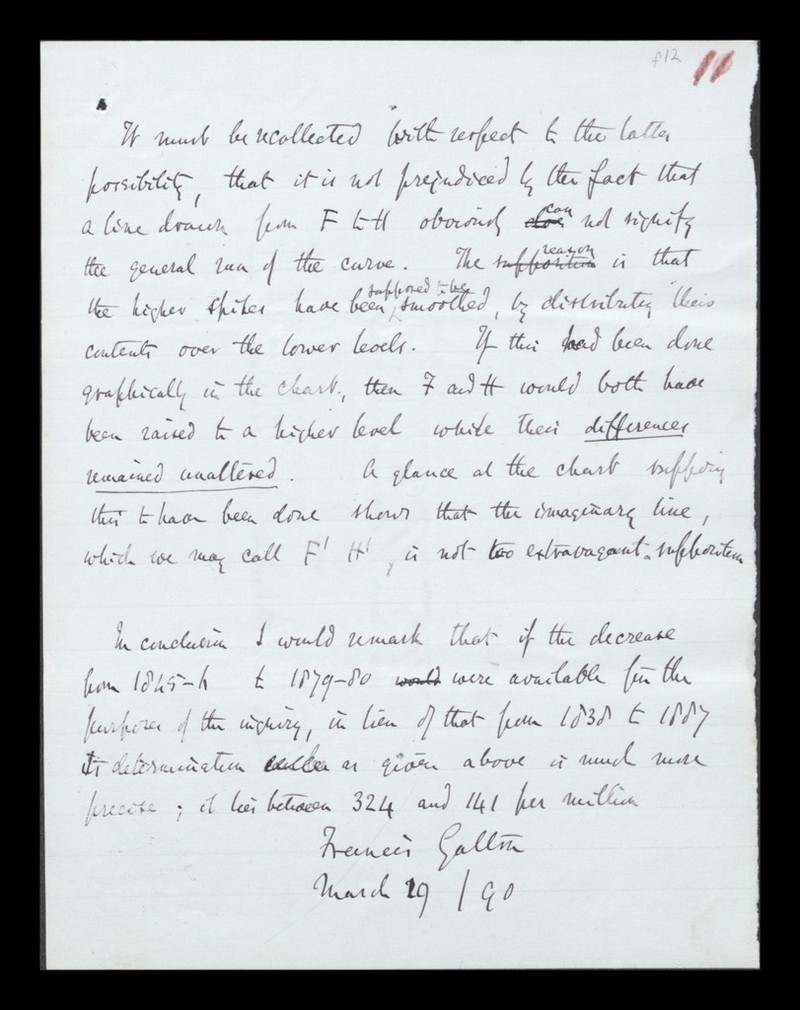 f12 11
It must be recollected with respect to the latter
possibility, that it is not prejudiced by the fact that
a line drawn from F to H obviously does can not signify
the general run of the curve. The supposition reason is that
the higher spikes have been supposed to be smoothed, by distributing their
contents over the lower levels. If this had been done
graphically in the chart, then F and H would both have
been raised to a higher level while their differences
remained unaltered. A glance at the chart supposing
this to have been done shows that the imaginary line,
which we may call F' H', is not too extravagant a supposition
In conclusion I would remark that if the decrease
from 1845-6 to 1879-80 would were available for the
purposes of the inquiry, in lieu of that from 1838 to 1887
its determination as given above is much more
precise; it lies between 324 and 141 per million
Francis Galton
March 29 / 90